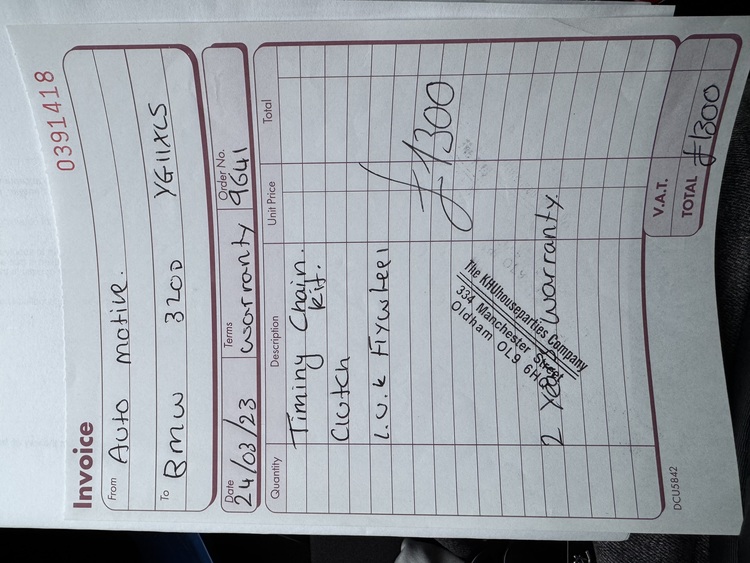 Invoice
0391418
From Auto motive.
To BMW 320D YG11XCS
Date Terms Order No.
24/03/23 warranty 9641
Quantity Description Unit Price Total
Timing Chain.
kit.
Clutch
L.U.K Flywheel
£1300
The KHUnouseparties Company
334 Manchester Street
Oldham OL9 6HQ
2 Years warranty
V.A.T.
TOTAL £1300
DCU5842